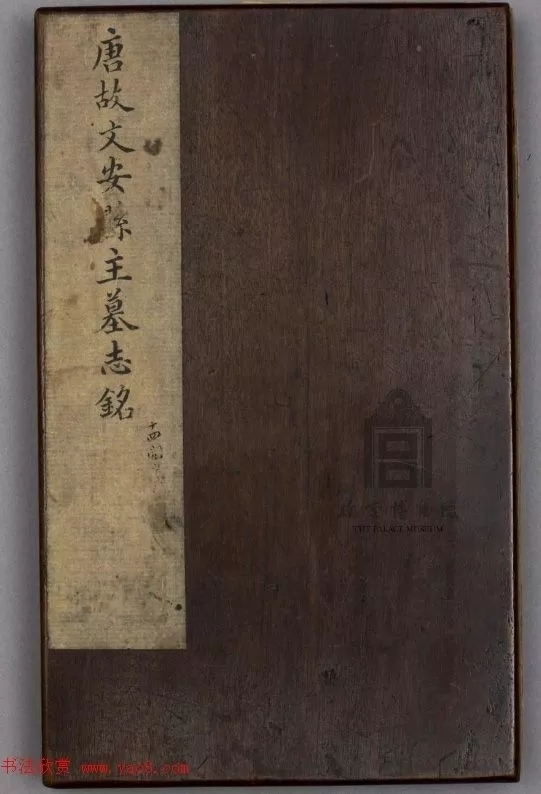 唐故文安縣主墓志銘
十四開
故宮博物院
THE PALACE MUSEUM
书法欣赏 www.yac8.com